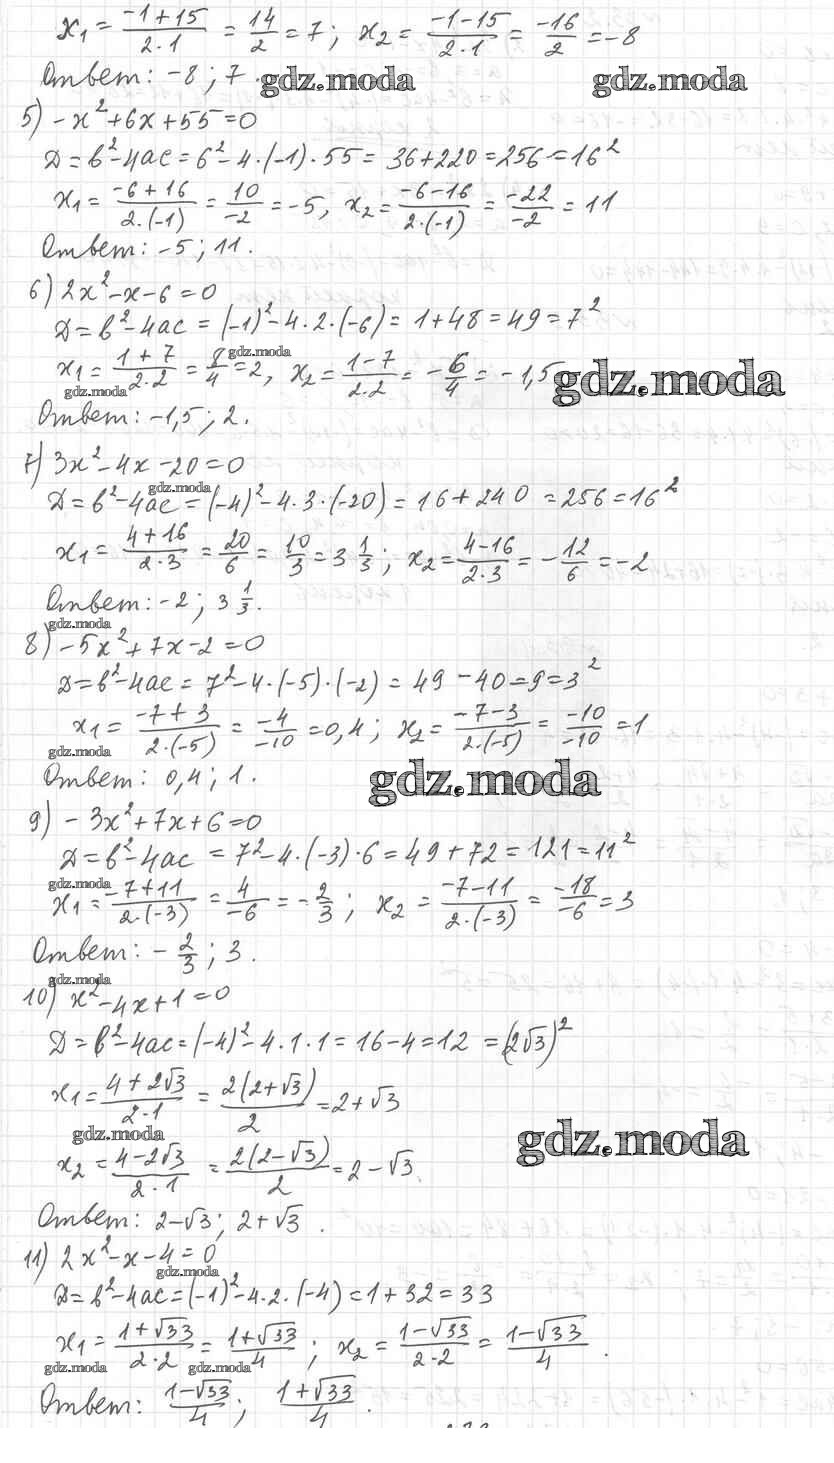 x₁ = (-1+15)/(2·1) = 14/2 = 7; x₂ = (-1-15)/(2·1) = -16/2 = -8
Ответ: -8; 7.
gdz.moda gdz.moda
5) -x²+6x+55=0
Д=в²-4ac=6²-4·(-1)·55=36+220=256=16²
x₁ = (-6+16)/(2·(-1)) = 10/-2 = -5, x₂ = (-6-16)/(2·(-1)) = -22/-2 = 11
Ответ: -5; 11.
6) 2x²-x-6=0
Д=в²-4ac=(-1)²-4·2·(-6)=1+48=49=7²
gdz.moda
x₁ = (1+7)/(2·2) = 8/4 = 2, x₂ = (1-7)/(2·2) = -6/4 = -1,5
gdz.moda gdz.moda
Ответ: -1,5; 2.
7) 3x²-4x-20=0
gdz.moda
Д=в²-4ac=(-4)²-4·3·(-20)=16+240=256=16²
x₁ = (4+16)/(2·3) = 20/6 = 10/3 = 3 1/3; x₂ = (4-16)/(2·3) = -12/6 = -2
Ответ: -2; 3 1/3.
gdz.moda
8) -5x²+7x-2=0
Д=в²-4ac=7²-4·(-5)·(-2)=49-40=9=3²
x₁ = (-7+3)/(2·(-5)) = -4/-10 = 0,4; x₂ = (-7-3)/(2·(-5)) = -10/-10 = 1
gdz.moda
Ответ: 0,4; 1.
gdz.moda
9) -3x²+7x+6=0
Д=в²-4ac=7²-4·(-3)·6=49+72=121=11²
gdz.moda
x₁ = (-7+11)/(2·(-3)) = 4/-6 = -2/3; x₂ = (-7-11)/(2·(-3)) = -18/-6 = 3
Ответ: -2/3; 3.
gdz.moda
10) x²-4x+1=0
Д=в²-4ac=(-4)²-4·1·1=16-4=12=(2√3)²
x₁ = (4+2√3)/(2·1) = 2(2+√3)/2 = 2+√3
gdz.moda gdz.moda
x₂ = (4-2√3)/(2·1) = 2(2-√3)/2 = 2-√3.
Ответ: 2-√3; 2+√3.
11) 2x²-x-4=0
gdz.moda
Д=в²-4ac=(-1)²-4·2·(-4)=1+32=33
x₁ = (1+√33)/(2·2) = (1+√33)/4; x₂ = (1-√33)/(2·2) = (1-√33)/4.
gdz.moda gdz.moda
Ответ: (1-√33)/4; (1+√33)/4.